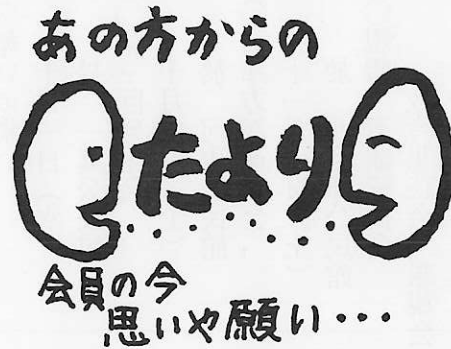 あの方からの
たより
会員の今
思いや願い・・・